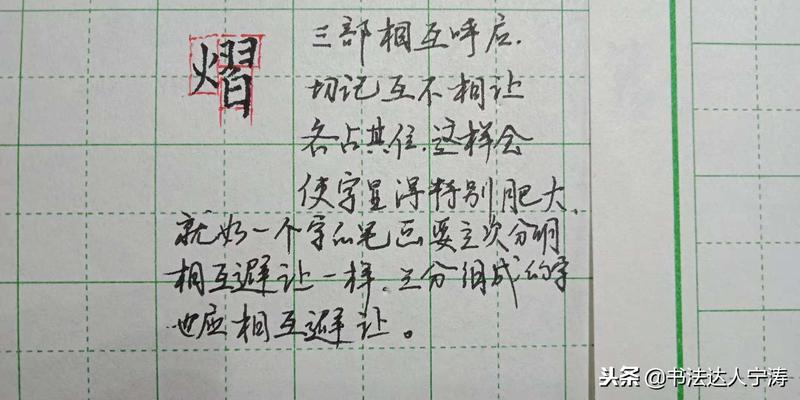 熠
三部相互呼应.
切记互不相让
各占其位.这样会
使字显得特别肥大、
就如一个字的笔画要主次分明
相互避让一样.三分组成的字
也应相互避让。
头条 @书法达人宁涛